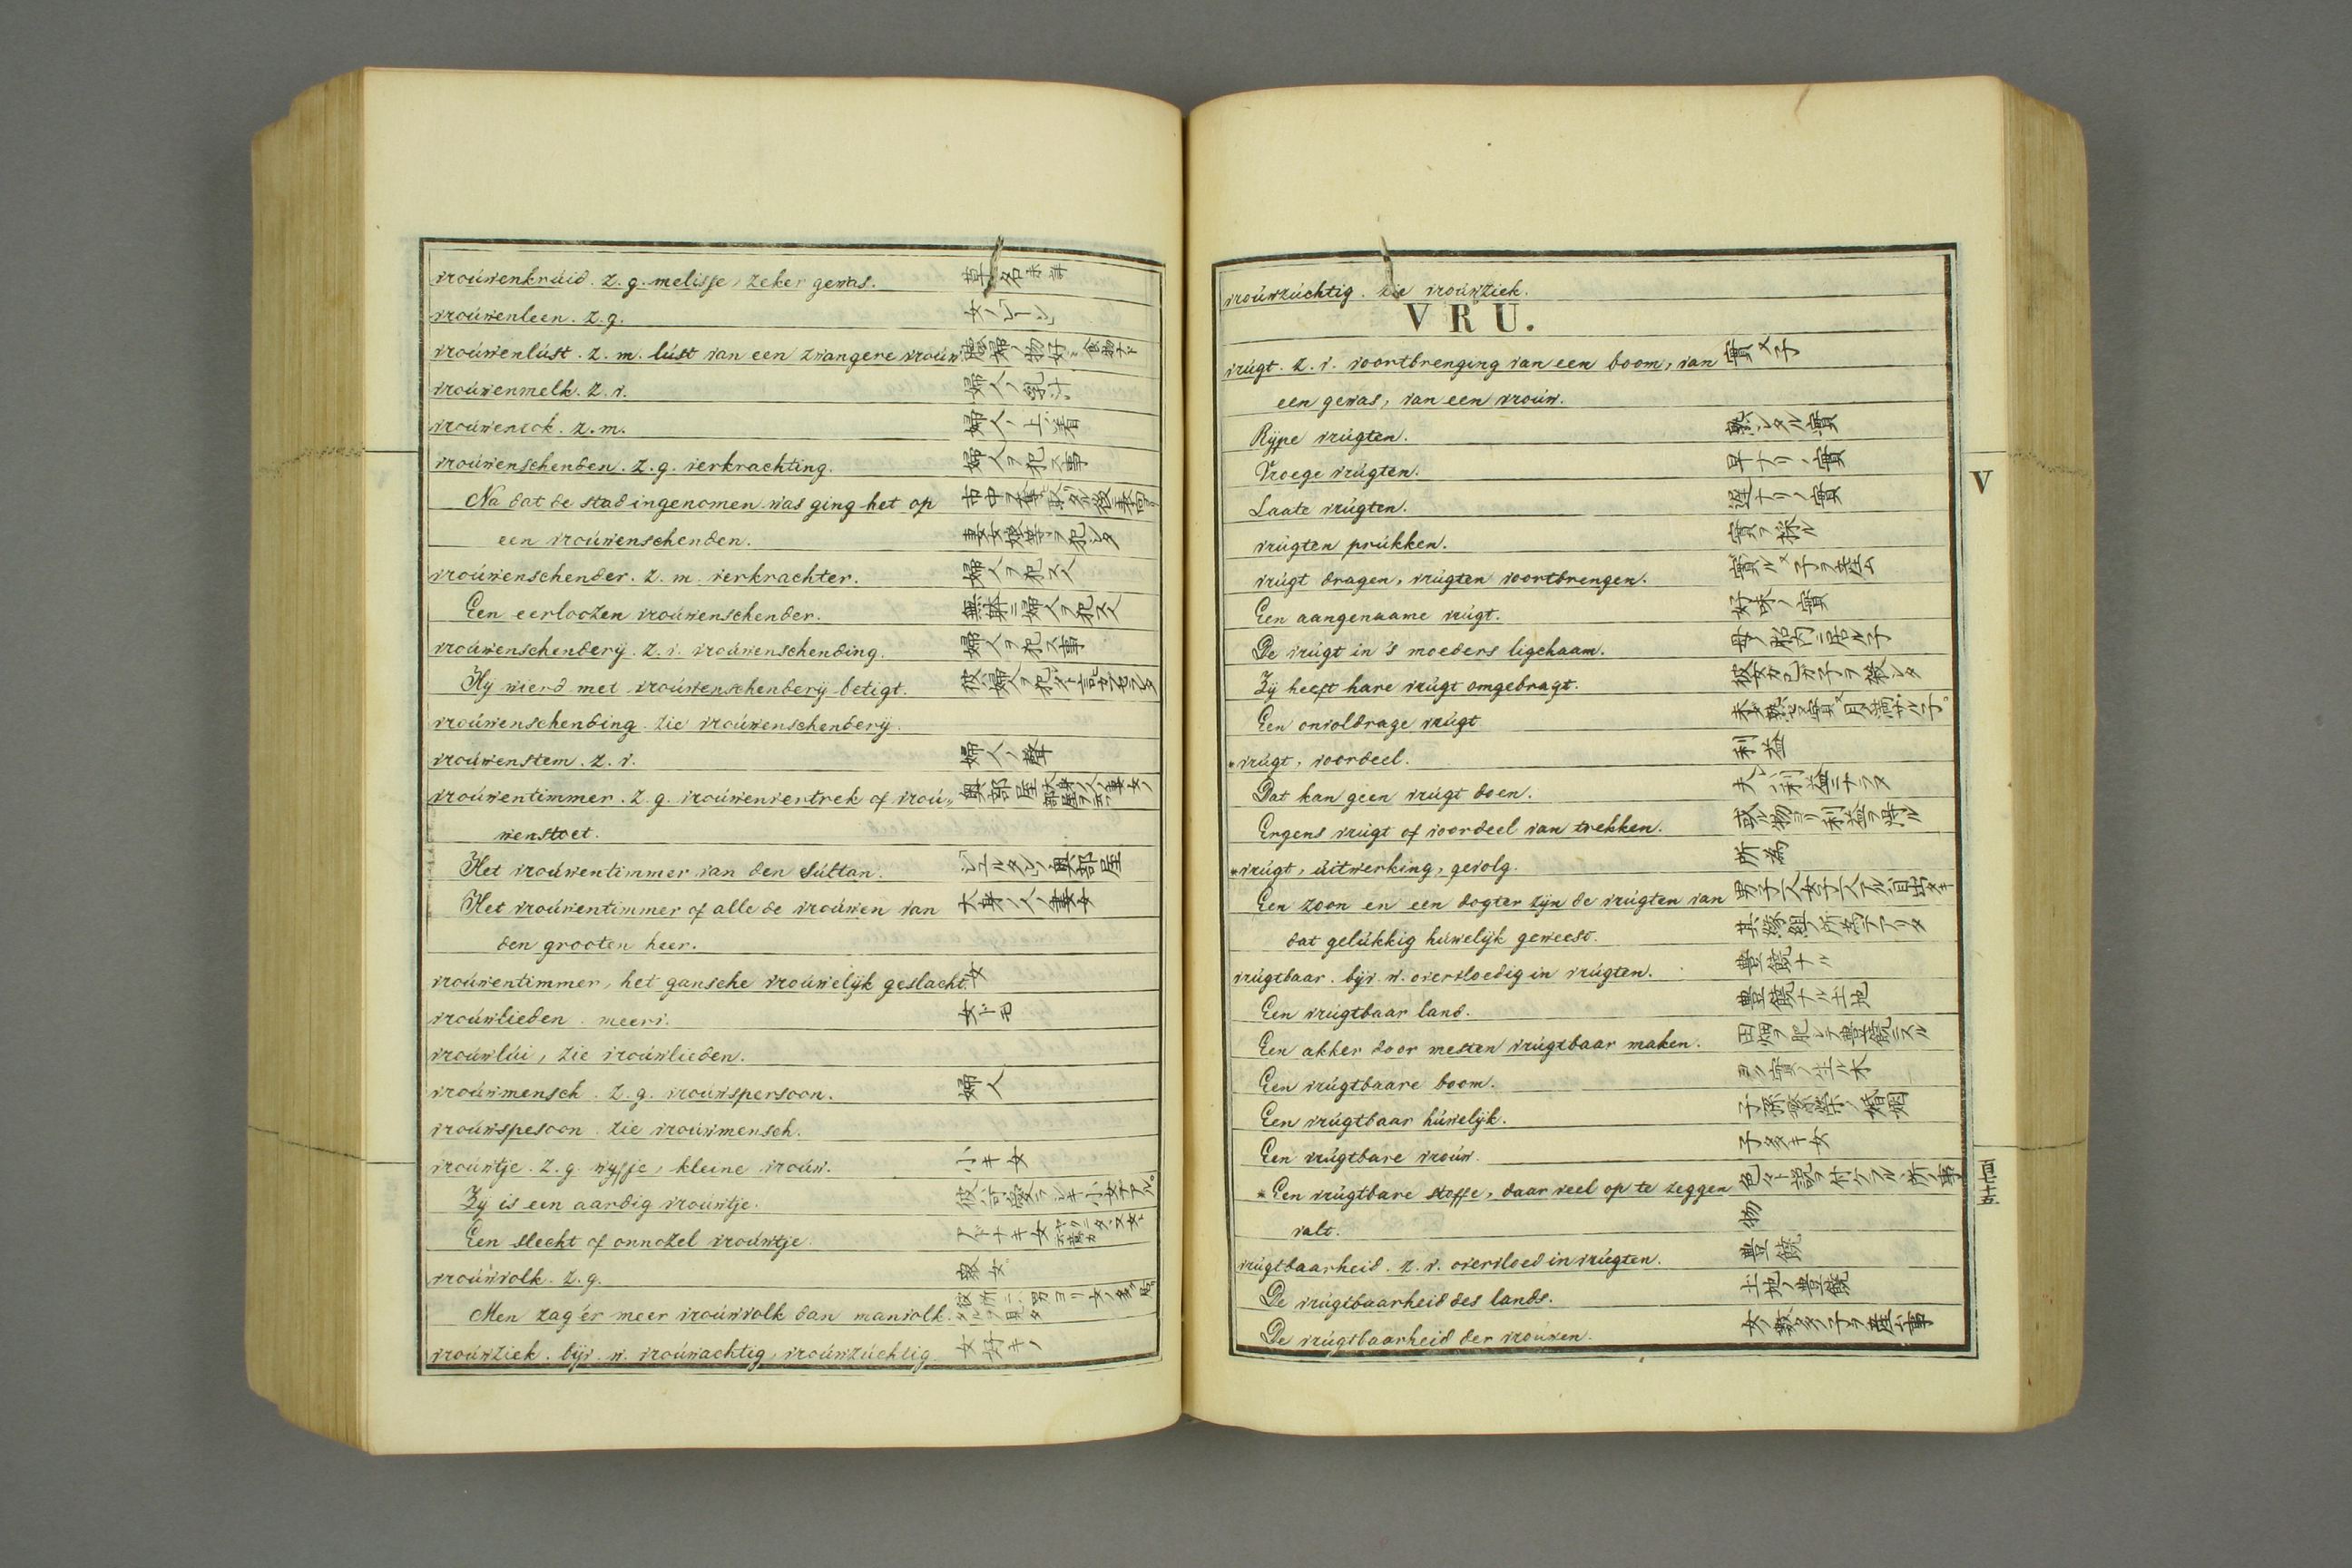 vroúwenkrúid. z. g. melisse, zeker gewas. 草ノ名
vroúwenleen. z. g.
vroúwenlúst. z. m. lúst van een zwangere vroúw. 婦ノ物好
vroúwenmelk. z. v. 婦人ノ乳汁
vroúwenrok. z. m. 婦人ノ上着
vroúwenschenden. z. g. verkrachting. 婦人ヲ犯ス事
Na dat de stad ingenomen was ging het op
een vroúwenschenden.
vroúwenschender. z. m. verkrachter. 婦人ヲ犯ス人
Een eerloozen vroúwenschender. 無躰ニ婦人ヲ犯ス人
vroúwenscherderÿ. z. v. vroúwenschending. 婦人ヲ犯ス事
Hÿ wierd met vroúwenschenderÿ betigt.
vroúwenschending. zie vroúwenschenderÿ.
vroúwenstem. z. v. 婦人ノ聲
vroúwentimmer. z. g. vroúwenvertrek of vroú„ 奥部屋
wenstoet.
Het vroúwentimmer van den Súltan. 奥部屋
Het vroúwentimmer of alle de vroúwen van 大身ノ人ノ妻女
den grooten heer.
vroúwentimmer, het gansche vroúwelÿk geslacht. 女
vroúwlieden. meerv. 女ドモ
vroúwlúi, zie vroúwlieden.
vroúwmensch. z. g. vroúwspersoon. 婦人
vroúwspesoon. zie vroúwmensch.
vroúwtje. z. g. wyfje, kleine vroúw. 小キ女
Zÿ is een aardig vroúwtje. 彼ハ可愛ラシキ小女デアル。
Een slecht of onnozel vroúwtje. アドナキ女
vroúwvolk. z. g. 衆女
Men zag ér meer vroúwvolk dan manvolk.
vroúwziek. bÿv. w. vroúwachtig, vroúwzúchtig. 女好キノ
vroúwzúchtig. zie vroúwziek.
VRU.
vrúgt. z. v. voortbrenging van een boom, van 實又子
een gewas, van een vroúw.
Rÿpe vrúgten. 熟シタル實
Vroege vrúgten. 早ナリノ實
Laate vrúgten. 遅ナリノ實
vrúgten prúkken. 實ヲ採ル
vrúgt dragen, vrúgten voortbrengen.
Een aangenaame vrúgt. 好味ノ實
De vrúgt in 's moeders ligchaam. 母ノ胎内ニ居ル子
Zÿ heeft hare vrúgt omgebragt. 彼女ガ己ガ子ヲ殺シタ
Een onvoldrage vrúgt
*vrúgt, voordeel. 利益
Dat kan geen vrúgt doen. 夫ハ利益ニナラヌ
Ergens vrúgt of voordeel van trekken. 或ル物ヨリ利益ヲ得ル
*vrúgt, úitwerking, gevolg. 所為
Een zoon en een dogter zÿn de vrúgten van
dat gelúkkig húwelÿk geweest. 其縁組ノ所為デアリタ
vrúgtbaar. bÿv. w. overvloedig in vrúgten. 豊饒ナル
Een vrúgtbaar land. 豊饒ナル土地
Een akker door mesten vrúgtbaar maken. 田畑ヲ肥シテ豊饒ニスル
Een vrúgtbaare boom.
Een vrúgtbaar húwelÿk. 子孫繁榮ノ婚姻
Een vrúgtbare vroúw. 子多キ女
*Een vrúgtbare stoffe, daar veel op te zeggen
valt. 物
vrúgtbaarheid. z. v. overvloed in vrúgten. 豊饒
De vrúgtbaarheid des lands. 土地ノ豊饒
De vrúgtbaarheid der vroúwen. 女ノ数多ノ子ヲ産ム事
V